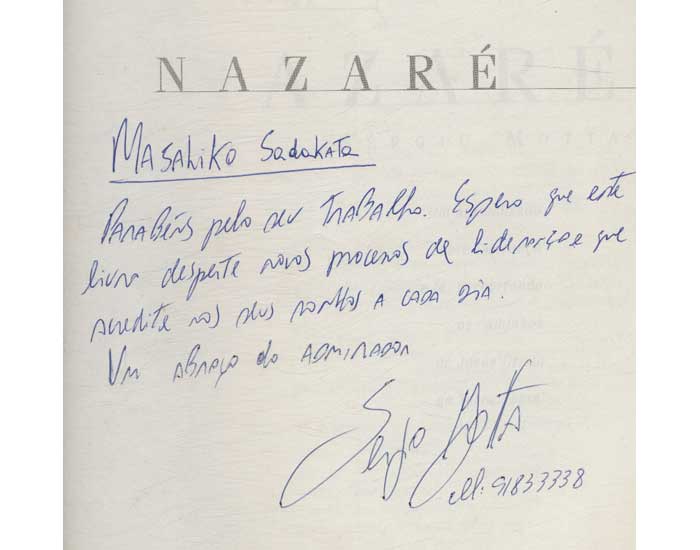 NAZARÉ
MASAHIKO Sadakata
PARABÉNS pelo seu TRABALHO. Espero que este
livro desperte novos processos de liderança e que
acredite nos seus sonhos A CADA DIA.
UM ABRAÇO do ADMIRADOR
Sergio Motta
cell: 91833338